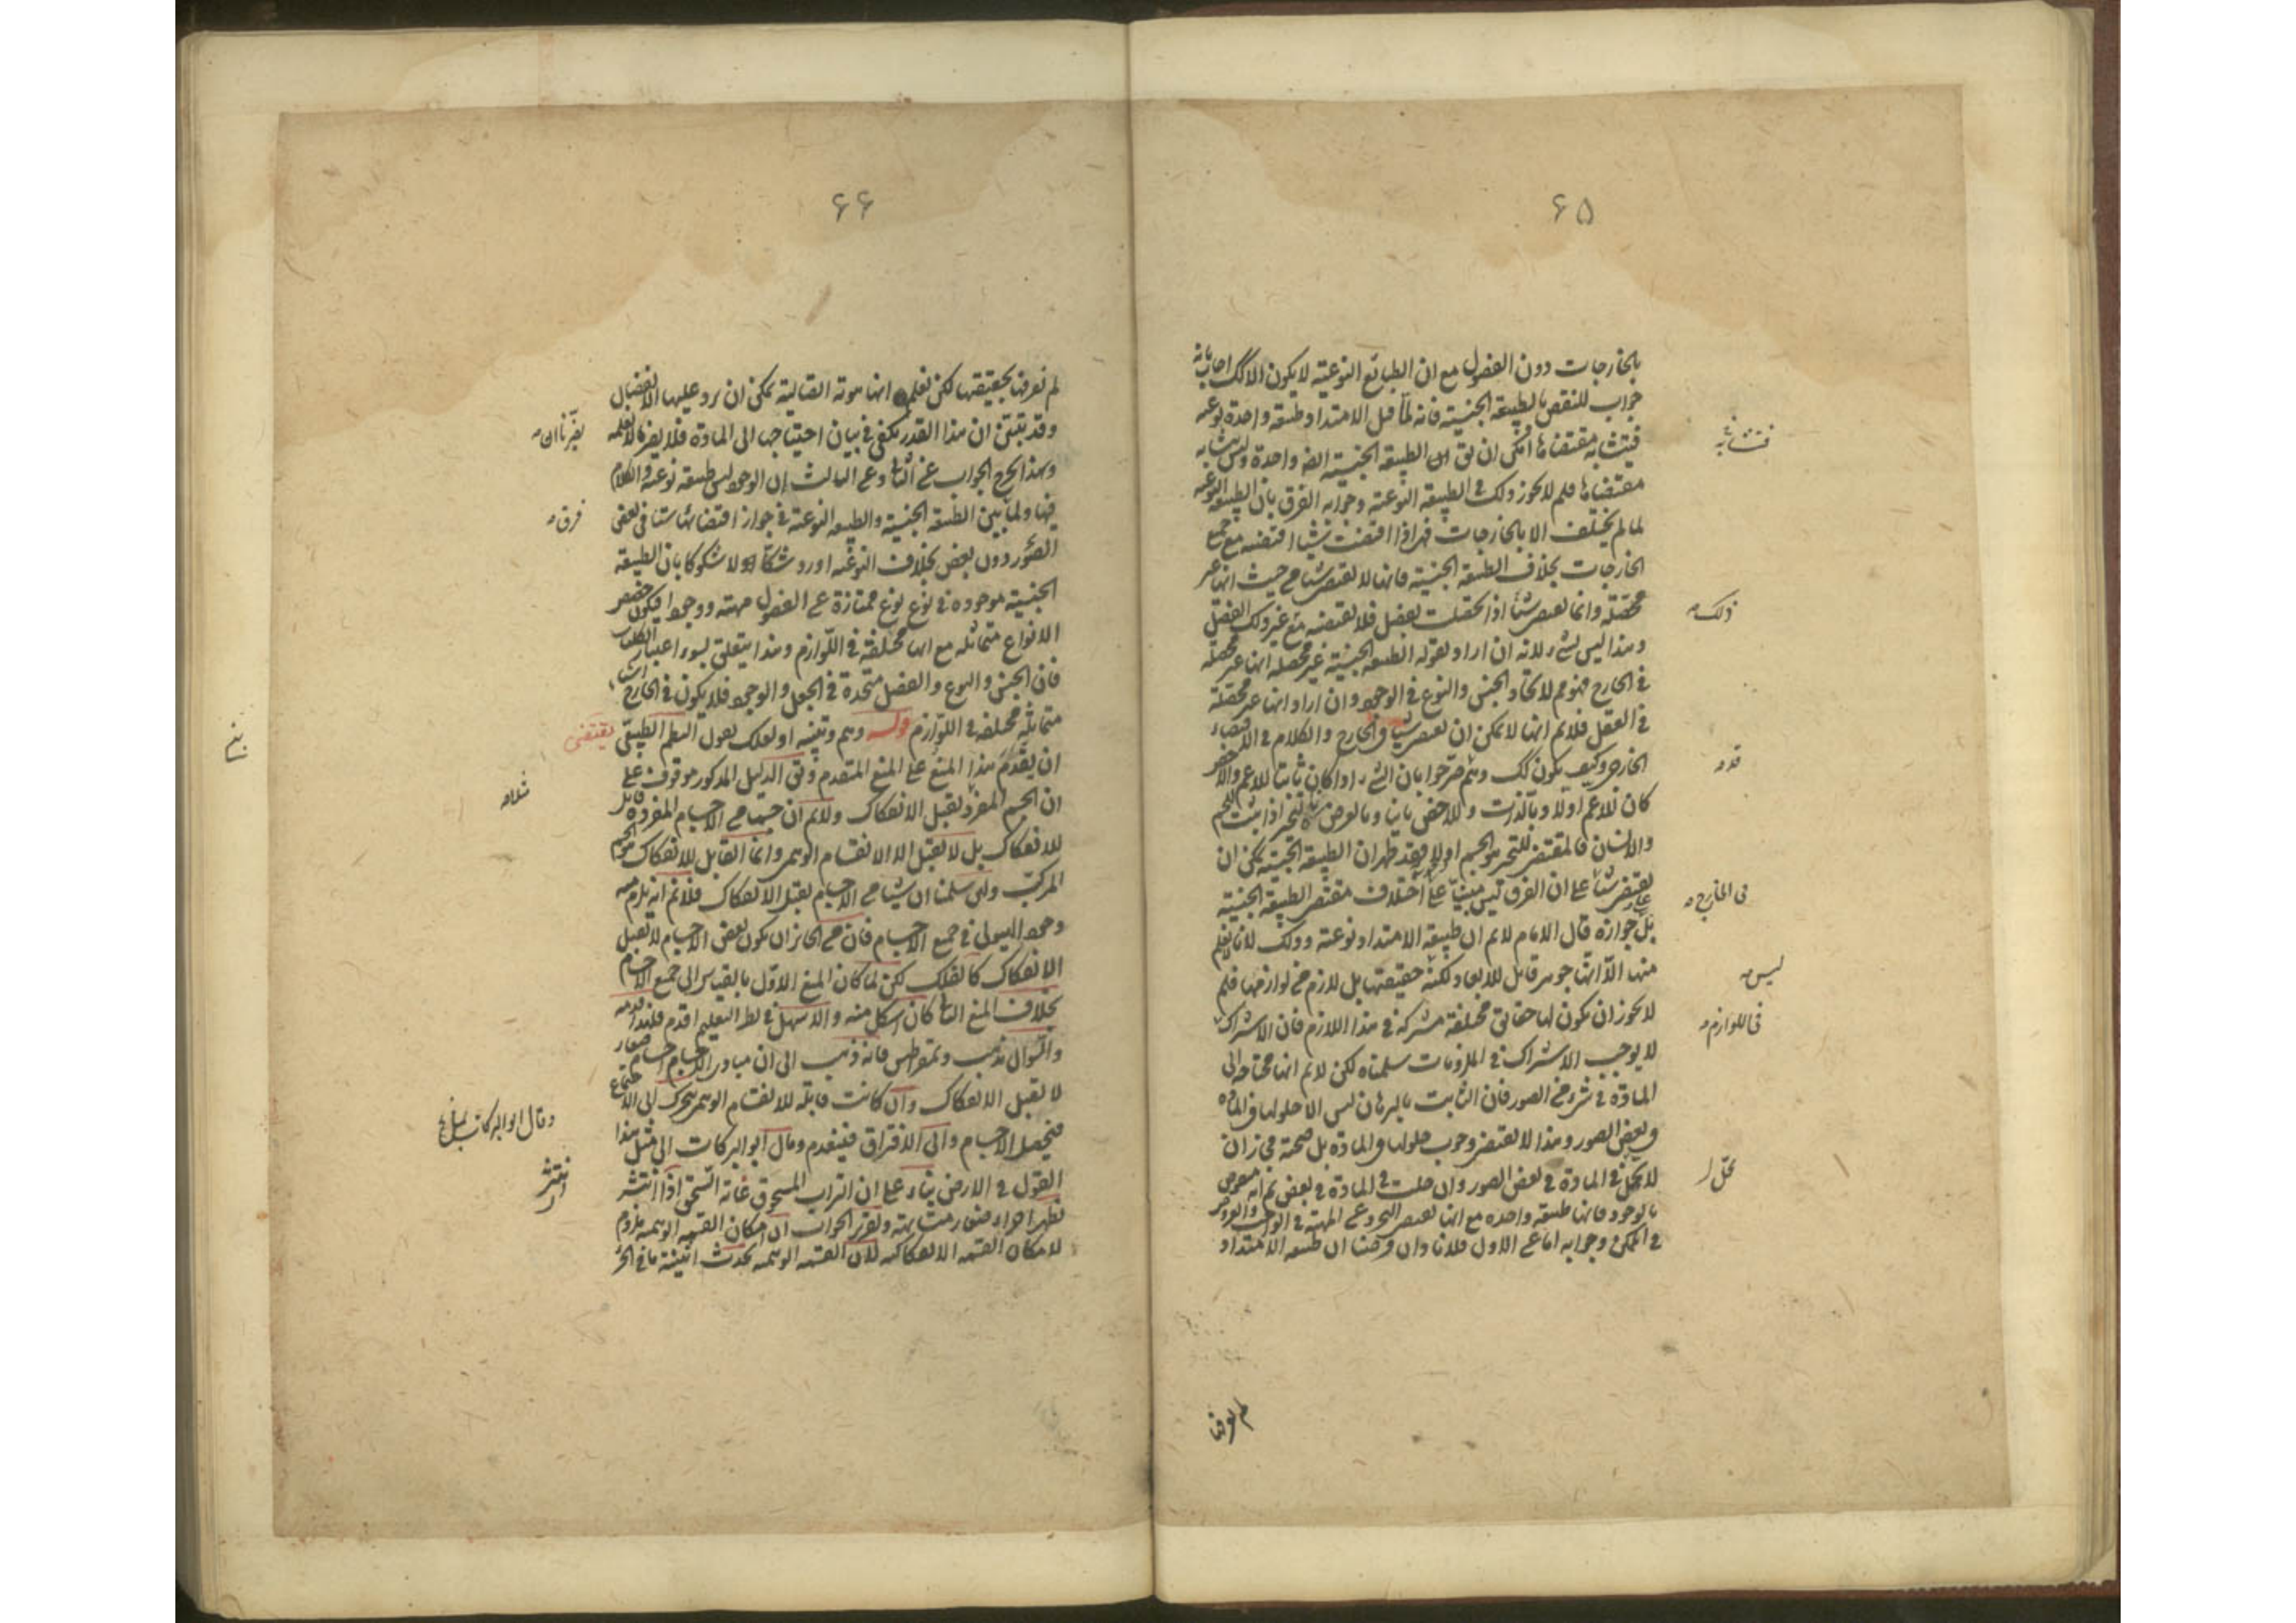 ۶۵
بالخارجات دون الفصول مع ان الطبائع النوعية لا يكون الا كك اجاب بانه
جواب للنقض بالطبيعة الجنسية فانه لما قيل الامتداد طبيعة واحدة نوعية
فيتشابه مقتضاها امكن ان يق ان الطبيعة الجنسية ايضا واحدة وليس يتشابه
مقتضاها فلم لا يجوز ذلك في الطبيعة النوعية وجوابه الفرق بان الطبيعة النوعية
لما لم يختلف الا بالخارجات فهي اذا اقتضت شيئا اقتضته مع جميع
الخارجات بخلاف الطبيعة الجنسية فانها لا تقتضي شيئا من حيث انها غير
محصلة وانما تقتضي شيئا اذا تحصلت بفصل فلا تقتضيه مع غير ذلك الفصل
وهذا ليس بشيء لانه ان اراد بقوله الطبيعة الجنسية غير محصلة انها غير محصلة
في الخارج فهو مم لاتحاد الجنس والنوع في الوجود وان اراد انها غير محصلة
في العقل فلانم انها لا يمكن ان تقتضي شيئا في الخارج والكلام في الاقتضاء
الخارجي وكيف يكون كك وهم صرحوا بان الشيء اذا كان ثابتا للاعم والاخص
كان للاعم اولا وبالذات وللاخص ثانيا وبالعرض كالتحيز اذا يثبت للجسم
والانسان فالمقتضي للتحيز هو الجسم اولا فقد ظهر ان الطبيعة الجنسية يمكن ان
يقتضي شيئا على ان الفرق ليس مبنيا على اختلاف مقتضى الطبيعة الجنسية
بل على جوازه قال الامام لانم ان طبيعة الامتداد نوعية وذلك لانا لا نعلم
منها الا انها جوهر قابل للابعاد ولكنه حقيقتها بل لازم من لوازمها فلم
لا يجوز ان يكون لها حقائق مختلفة مشتركة في هذا اللازم فان الاشتراك
لا يوجب الاشتراك في الملزومات سلمناه لكن لانم انها محتاجة الى
المادة في شيء من الصور فان الثابت بالبرهان ليس الا حلولها في المادة
في بعض الصور وهذا لا يقتضي وجوب حلولها في المادة بل صحته فجاز ان
لا يحل في المادة في بعض الصور وان حلت في المادة في بعض ثم انه منقوض
بالوجود فانها طبيعة واحدة مع انها تقتضي التجرد عن المهية في الواجب والعروض
في الممكن وجوابه اما عن الاول فلانا وان فرضنا ان طبيعة الامتداد
فتشابه
ذلك
قده
في الخارج
ليس
في اللوازم
تحل
لم نعرفها
۶۶
لم نعرفها بحقيقتها لكن نعلم انها هوية اتصالية يمكن ان يرد عليها الانفصال
وقد تبين ان هذا القدر يكفي في بيان احتياجها الى المادة فلا يضرنا لا نعلمه
وبهذا الخرج الجواب عن الثاني وعن الثالث ان الوجود ليس طبيعة نوعية والكلام
فيها ولما بين الطبيعة الجنسية والطبيعة النوعية في جواز اقتضائها شيئا في بعض
الصور دون بعض بخلاف النوعية اورد شكا اولا شكوكا بان الطبيعة
الجنسية موجودة في نوع نوع ممتازة عن الفصول مهية ووجودا فيكون حصص
الانواع متماثلة مع انها مختلفة في اللوازم وهذا يتعلق بسوء اعتبار الكليات
فان الجنس والنوع والفصل متحدة في الجعل والوجود فلا يكون في الخارج اشياء
متماثلة مختلفة في اللوازم قوله وهم وتنبيه او لعلك تقول النظم الطبيعي يقتضي
ان يقدم هذا المنع على المنع المتقدم وفي الدليل المذكور موقوف على
ان الجسم المفرد يقبل الانفكاك ولانم ان جسما من الاجسام المفردة قابل
للانفكاك بل لا يقبل الا الانقسام الوهمي وانما القابل للانفكاك هو الجسم
المركب ولئن سلمنا ان شيئا من الاجسام يقبل الانفكاك فلانم انه يلزم منه
وجود الهيولى في جميع الاجسام فان من الجائز ان يكون بعض الاجسام لا يقبل
الانفكاك كالفلك لكن لما كان المنع الاول بالقياس الى جميع الاجسام
بخلاف المنع الثاني كان اشكل منه والاسهل في نظر التعليم اقدم فلهذا قدمه
والسؤال مذهب ذيمقراطيس فانه ذهب الى ان مبادى الاجسام اجسام صغار
لا تقبل الانفكاك وان كانت قابلة للانقسام الوهمي يتحرك الى الاجتماع
فيحصل الاجسام والى الافتراق فينعدم ومال ابو البركات الى مثل هذا
القول في الارض بناء على ان التراب المسحوق غاية السحق اذا انتشر
يظهر اجزاء صغار متشابهة وتقرير الجواب ان امكان القسمة الوهمية ملزوم
لامكان القسمة الانفكاكية لان القسمة الوهمية تحدث اثنينية ما في الجزء
يضرنا ان
فرق
يقتضي
وقال ابو البركات
انتشر